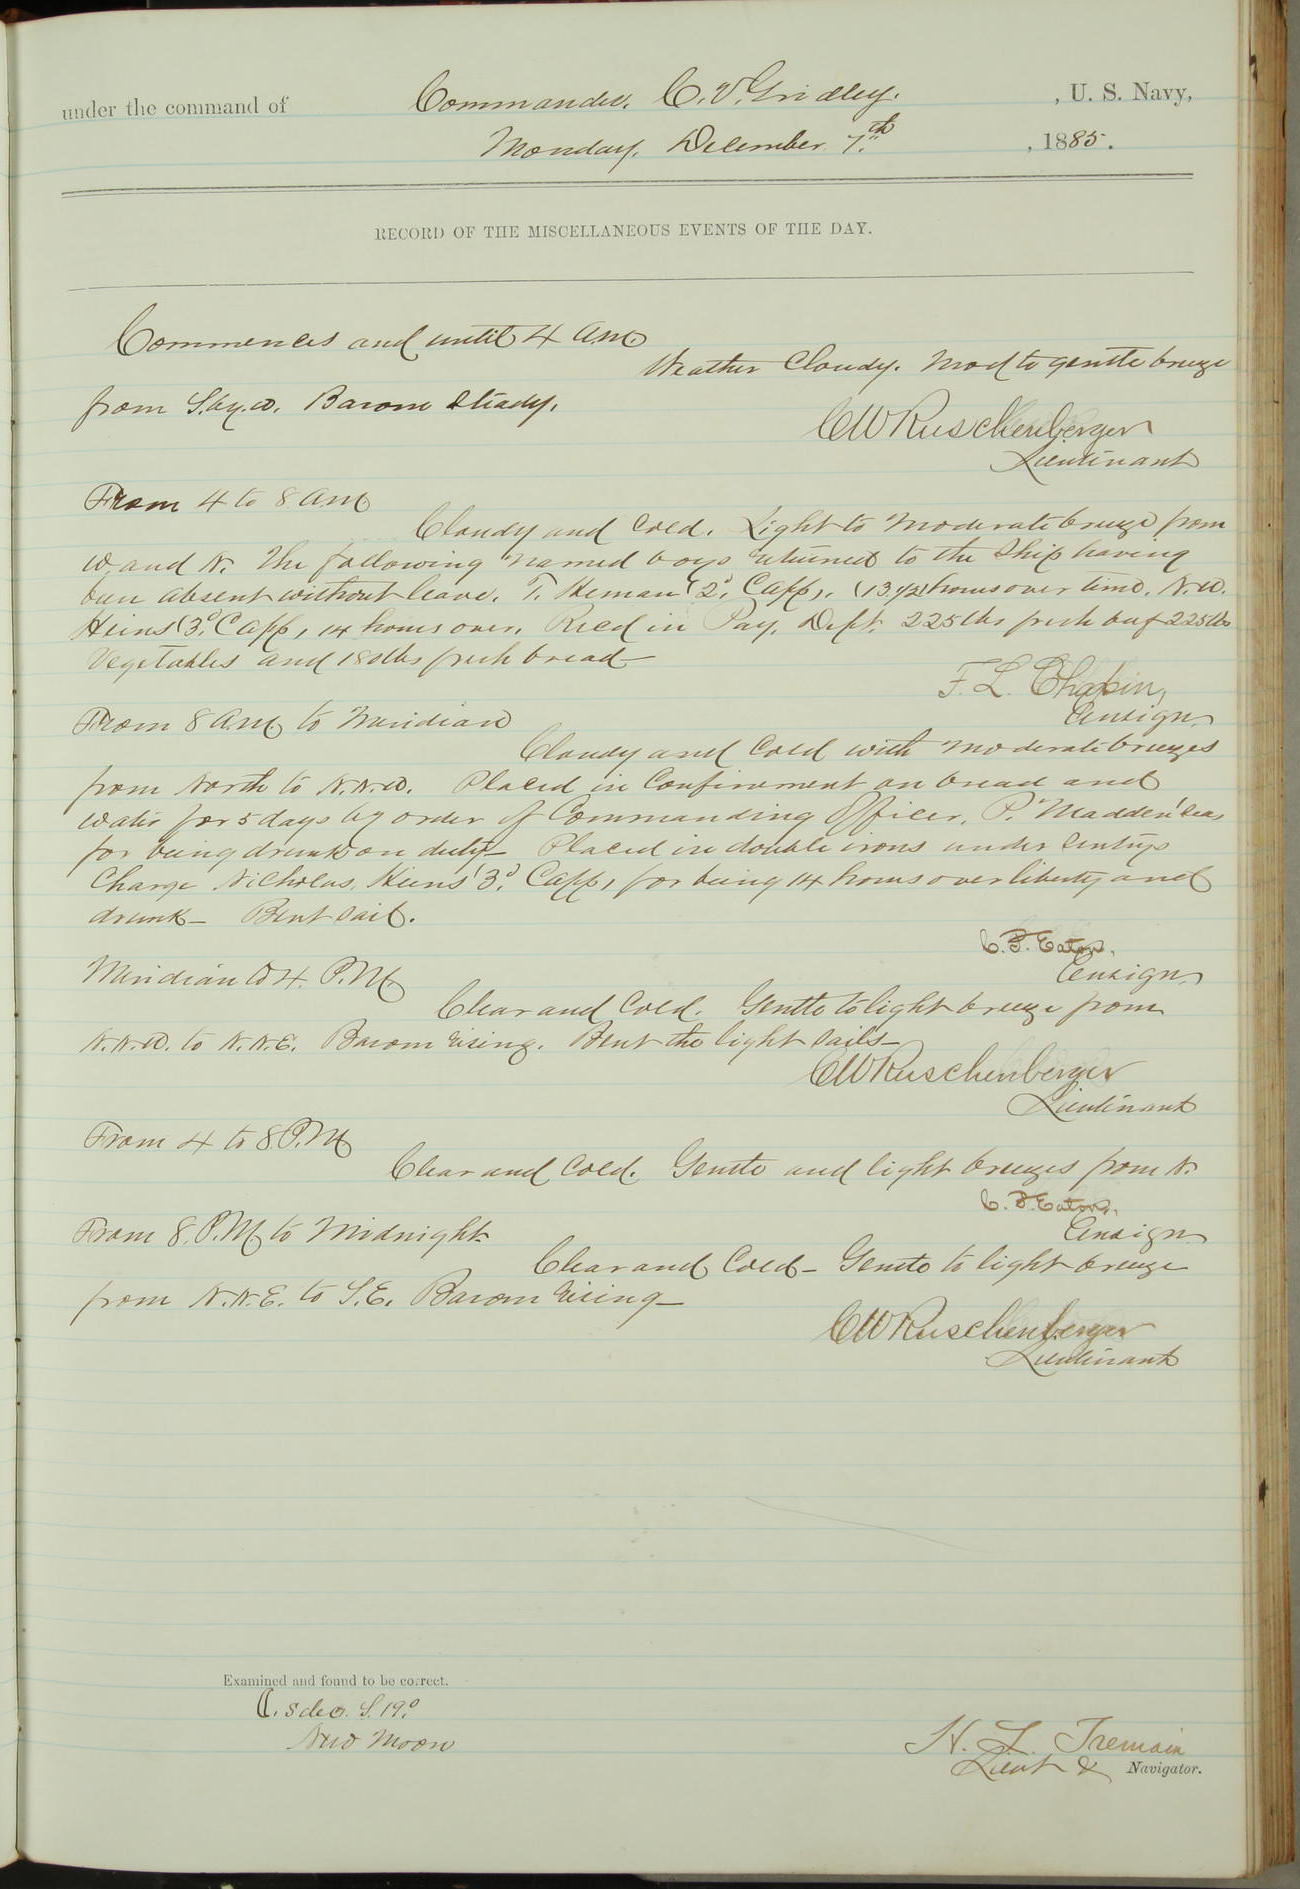 under the command of Commander. C. V. Gridley. , U. S. Navy,
Monday, December 7th , 1885.
RECORD OF THE MISCELLANEOUS EVENTS OF THE DAY.
Commences and until 4 A.M.
Weather Cloudy. Mod to gentle breeze
from S. by. W. Barom Steady.
CW Ruschenberger
Lieutenant
From 4 to 8 A.M
Cloudy and Cold. Light to Moderate breeze from
W and N. The following named boys returned to the Ship having
been absent without leave. T. Heman (2d Capp,. (13 1/2) hours over time. N. W.
Heins (3d Capp, 14 hours over. Recd in Pay. Dept. 225 lbs fresh beef 225 lbs
Vegetables and 180 lbs fresh bread—
F. L. Chapin,
Ensign.
From 8 A.M. to Meridian
Cloudy and Cold with Moderate breezes
from North to N.N.W. Placed in Confinement on bread and
water for 5 days by order of Commanding Officer, P. Madden Seas
for being drunk on duty— Placed in double irons under Sentrys
Charge Nicholas, Heins (3d Capp, for being 14 hours over liberty and
drunk— Bent sail.
C. P. Eaton.
Ensign.
Meridian to 4. P.M
Clear and Cold. Gentle to light breeze from
N.N.W. to N.N.E. Barom rising. Bent the light sails—
CW Ruschenberger
Lieutenant
From 4 to 8 P.M
Clear and Cold. Gentle and light breezes from N.
C. P. Eaton,
Ensign
From 8. P.M. to Midnight
Clear and Cold— Gentle to light breeze
from N.N.E. to S.E. Barom Rising—
CW Ruschenberger
Lieutenant
Examined and found to be correct.
s dec. S. 19.°
New Moon
H. L. Tremain
Lieut & Navigator.